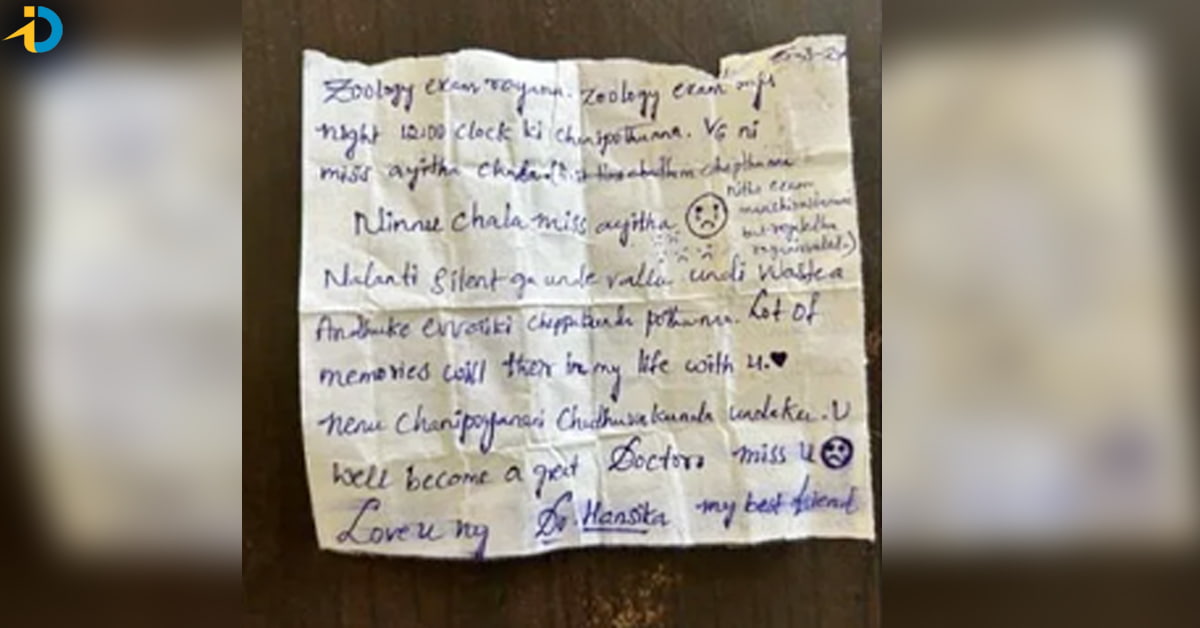 iD
Zoology exam rayana. Zoology exam
night 12:00 clock ki chanipothunna. VG ni
miss ayitha chala
Ninnu chala miss ayitha
nitho exam
but
Nalanti Silent ga unde vallu undi Waste a
Andhuke evvariki cheppakunda pothunna. Lot Of
memories will ther in my life with u.♥
nenu Chanipoyanani Chadhuvakunda undaku. U
Well become a gret Doctor miss U
Love u my Dr. Hansika my best friend